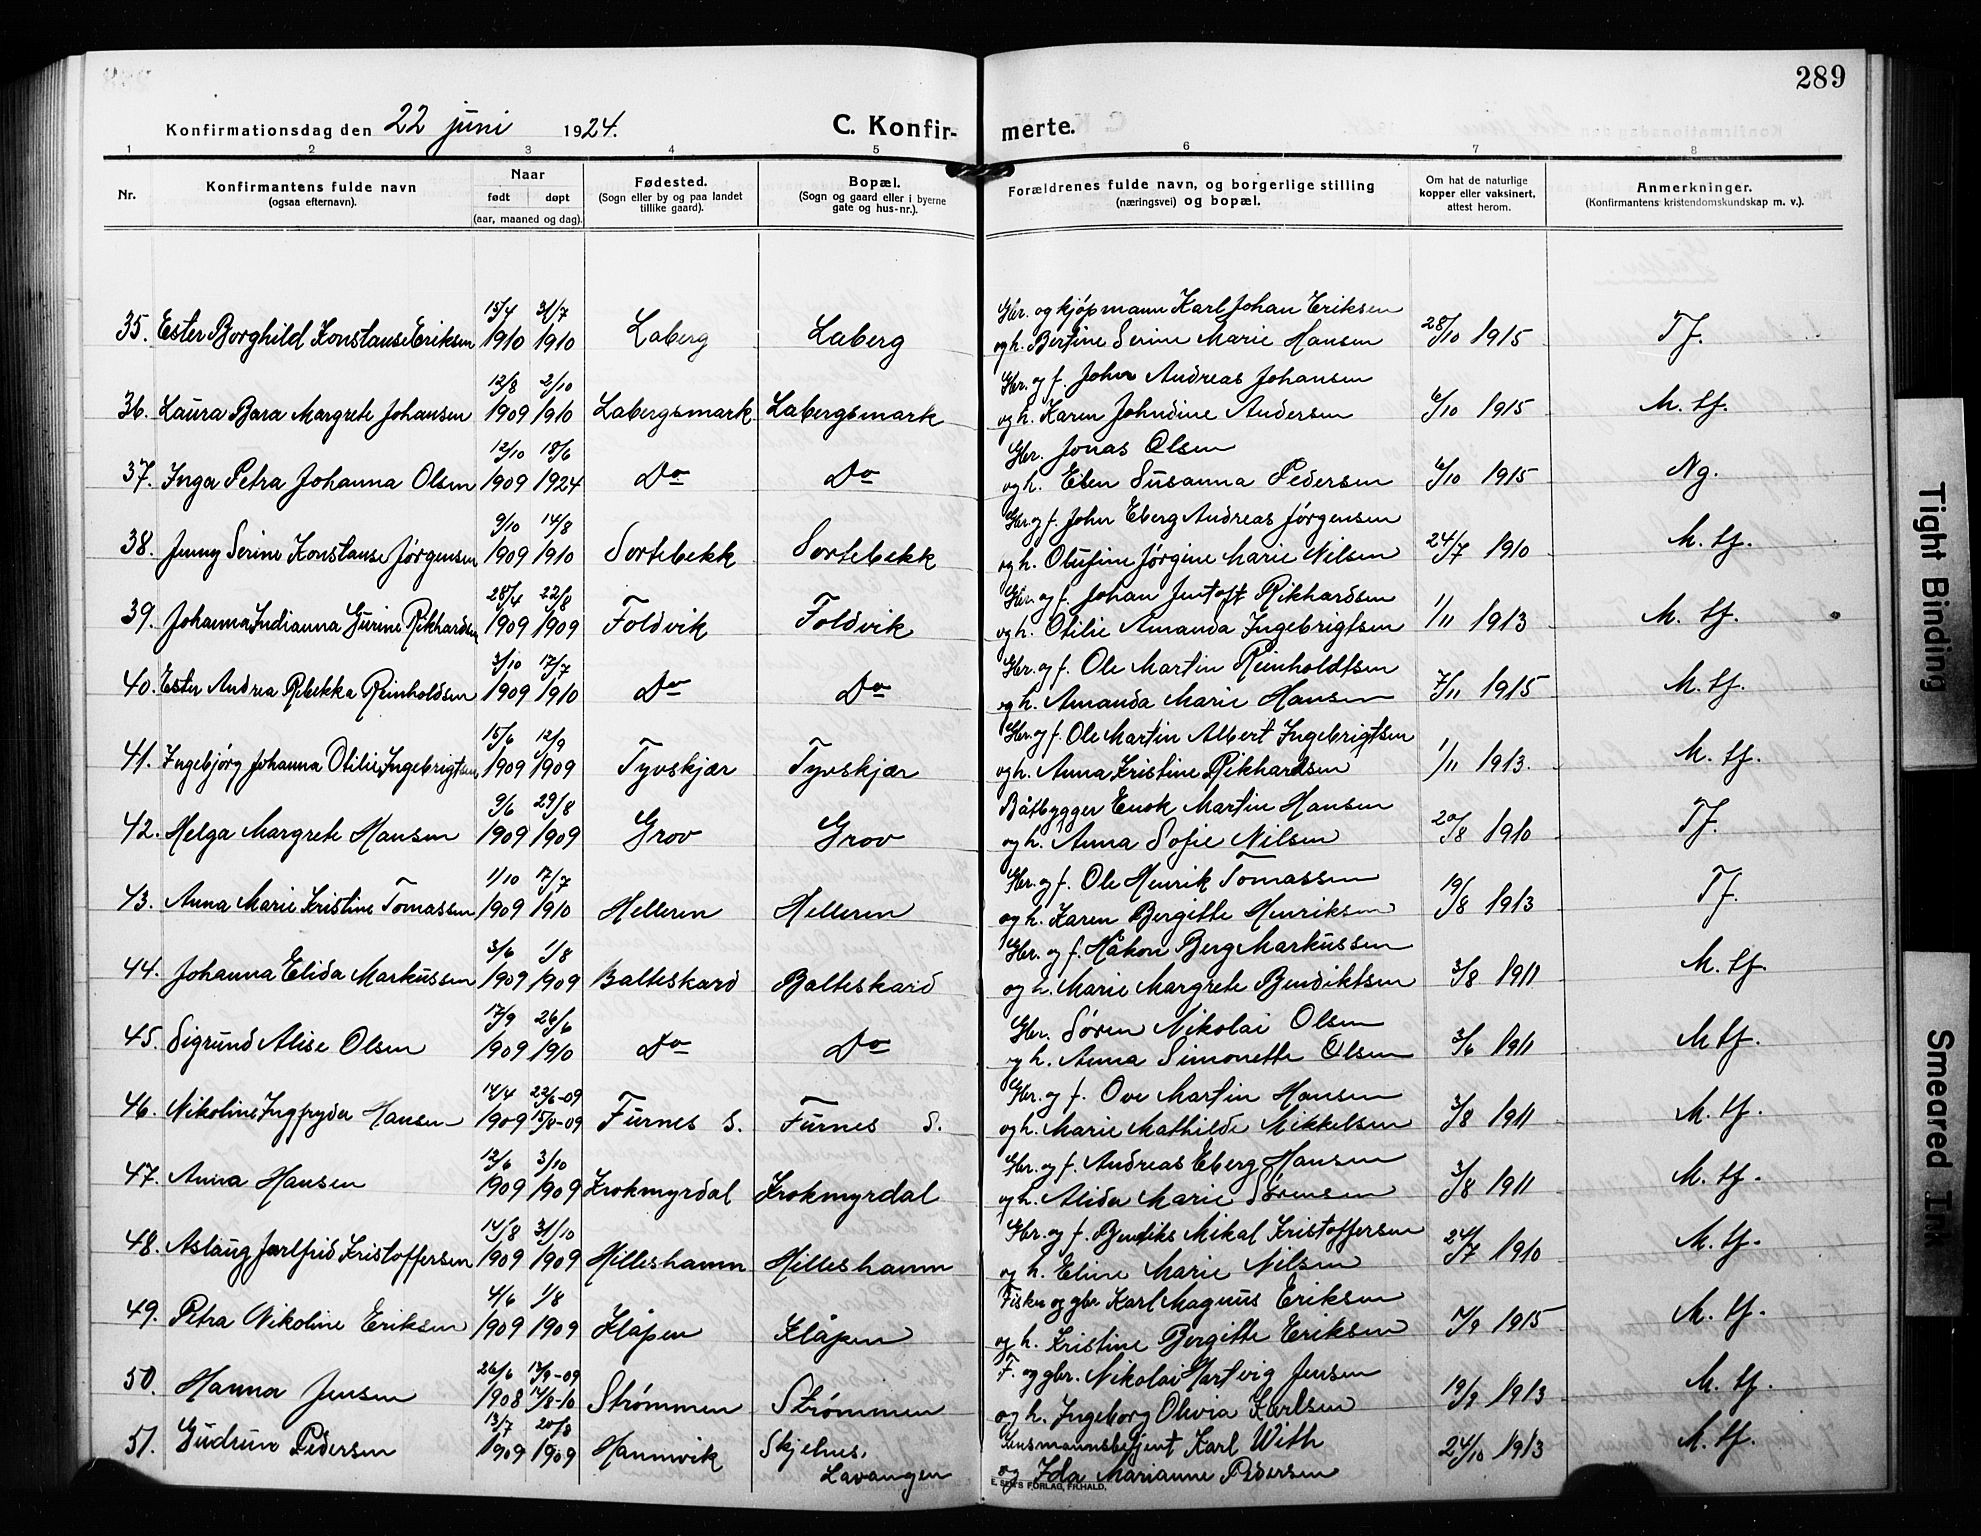 289
Konfirmationsdag den 22 juni 1924. C. Konfir- merte.
1 2 3 4 5 6 7 8
Nr. Konfirmantens fulde navn (ogsaa efternavn). Naar født døpt (aar, maaned og dag). Fødested. (Sogn eller by og paa landet tillike gaard). Bopæl. (Sogn og gaard eller i byerne gate og hus-nr.). Forældrenes fulde navn, og borgerlige stilling (næringsvei) og bopæl. Om hat de naturlige kopper eller vaksinert, attest herom. Anmerkninger. (Konfirmantens kristendomskundskap m. v.).
15/4 31/7 Gbr. og kjøpmann Karl Johan Eriksen
35. Ester Borghild Konstanse Eriksen 1910 1910 Laberg Laberg og h. Bertine Serine Marie Hansen 28/10 1915 Tf.
12/8 2/10 Gbr. og f. Johan Andreas Johansen
36. Laura Bara Margrete Johansen 1909 1910 Labergsmark Labergsmark og h. Karen Johndine Andersen 6/10 1915 M. tf.
12/10 18/6 Gbr. Jonas Olsen
37. Inga Petra Johanna Olsen 1909 1924 Do Do og h. Elen Susanna Pedersen 6/10 1915 Ng.
9/10 14/8 Gbr. og f. Johan Eberg Andreas Jørgensen
38. Jenny Serine Konstanse Jørgensen 1909 1910 Sortebekk Sortebekk og h. Olufine Jørgine Marie Nilsen 24/7 1910 M. tf.
28/4 22/8 Gbr. og f. Johan Jentoft Rikhardsen
39. Johanna Indianna Gurine Rikhardsen 1909 1909 Foldvik Foldvik og h. Otilie Amanda Ingebrigtsen 1/11 1913 M. tf.
3/10 17/7 Gbr. og f. Ole Martin Reinholdtsen
40. Ester Andrea Rebekka Reinholdsen 1909 1910 Do Do og h. Amanda Marie Hansen 7/11 1915 M. tf.
15/6 12/9 Gbr. og f. Ole Martin Albert Ingebrigtsen
41. Ingebjørg Johanna Otilie Ingebrigtsen 1909 1909 Tyvskjær Tyvskjær og h. Anna Kristine Rikhardsen 1/11 1913. M. tf.
9/6 29/8 Båtbygger Enok Martin Hansen
42. Helga Margrete Hansen 1909 1909 Grov Grov og h. Anna Sofie Nilsen 20/8 1910 Tf.
1/10 17/7 Gbr. og f. Ole Henrik Tomassen
43. Anna Marie Kristine Tomassen 1909 1910 Helleren Helleren og h. Karen Bergitte Henriksen 19/8 1913 Tf.
3/6 1/8 Gbr. og f. Håkon Berg Markussen
44. Johanna Elida Markussen 1909 1909 Balteskard Balteskard og h. Marie Margrete Bendiktsen 3/8 1911 M. tf.
17/9 26/6 Gbr. Søren Nikolai Olsen
45. Sigrund Alise Olsen 1909 1910 Do Do og h. Anna Simonette Olsen 3/6 1911 M tf.
14/4 22/6-09 Gbr. og f. Ove Martin Hansen
46. Nikoline Ingfryda Hansen 1909 15/8-09 Furnes S. Furnes S. og h. Marie Mathilde Mikkelsen 3/8 1911 M. tf.
12/6 3/10 Gbr. og f. Andreas Eberg Hansen
47. Anna Hansen 1909 1909 Krokmyrdal Krokmyrdal og h. Alida Marie Sørensen 3/8 1911 M. tf.
14/8 31/10 Gbr. og f. Bendiks Mikal Kristoffersen
48. Aslaug Jarlfrid Kristoffersen 1909 1909 Hilleshamn Hilleshamn og h. Eline Marie Nilsen 24/7 1910 M. tf.
4/6 1/8 Fisker og gbr Karl Magnus Eriksen
49. Petra Nikoline Eriksen 1909 1909 Klåpen Klåpen og h. Kristine Bergitte Eriksen 17/9 1915 M. tf.
26/6 17/9-09 F. og gbr. Nikolai Hartvig Jensen
50. Hanna Jensen 1908 14/8-10 Strømmen Strømmen og h. Ingeborg Olivia Karlsen 19/9 1913 M. tf.
13/7 20/8 Lensmannsbetjent Karl With
51. Gudrun Pedersen 1909 1909 Hamnvik Skjelnes, Lavangen og Ida Marianne Pedersen 24/10 1913 M. tf.
E. SEM'S FORLAG, FR.HALD,
Tight Binding
Smeared Ink